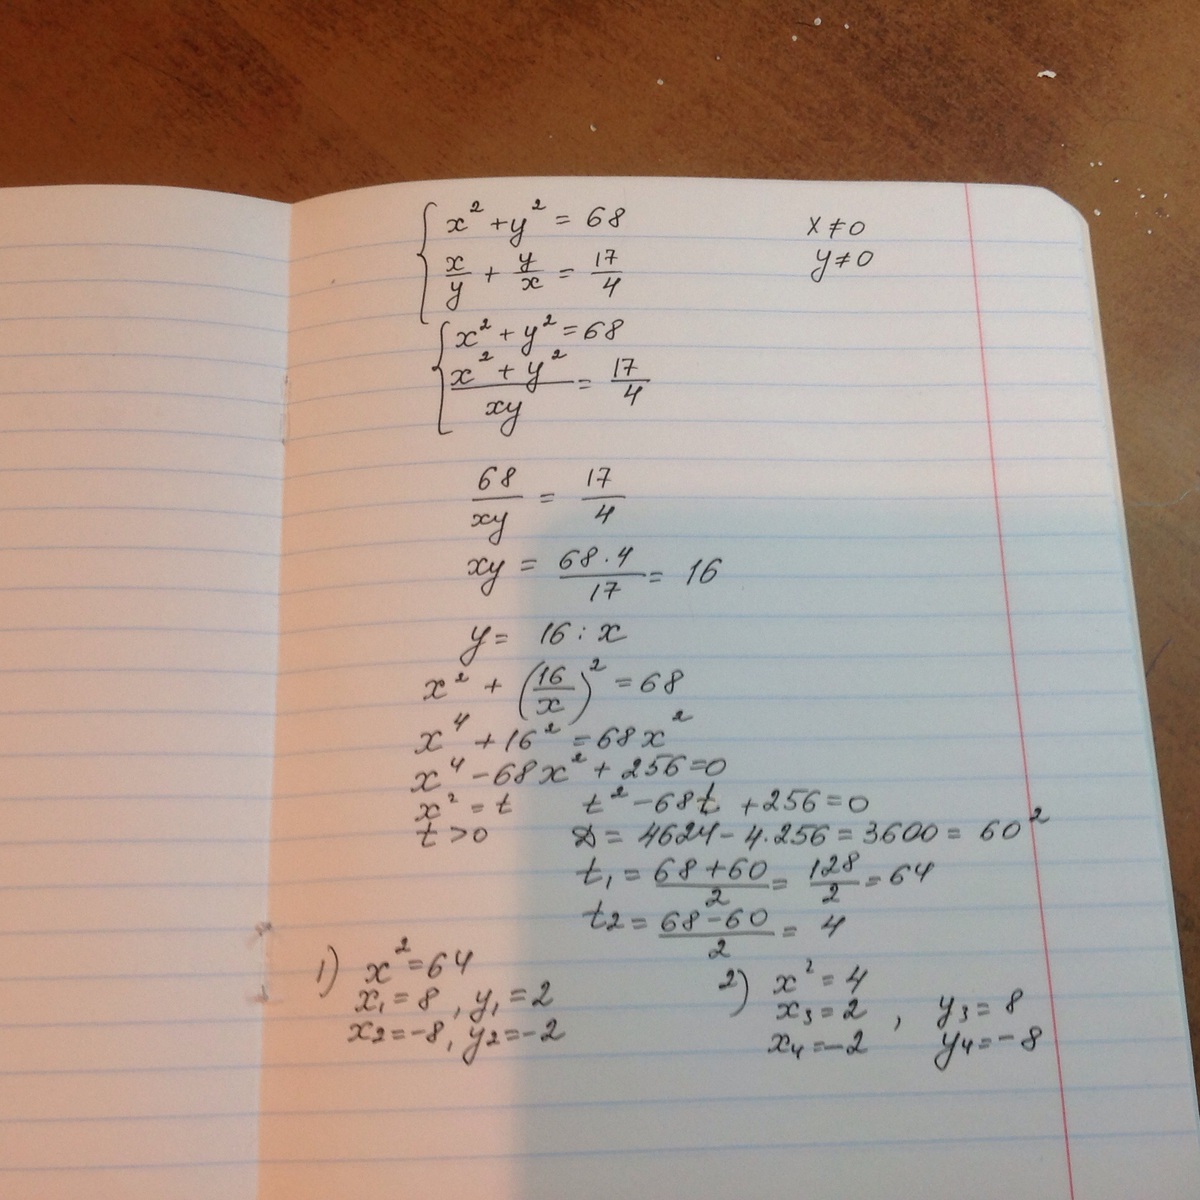 x² + y² = 68    x ≠ 0
x/y + y/x = 17/4    y ≠ 0
x² + y² = 68
(x² + y²)/xy = 17/4
68/xy = 17/4
xy = 68·4/17 = 16
y = 16 : x
x² + (16/x)² = 68
x⁴ + 16² = 68x²
x⁴ - 68x² + 256 = 0
x² = t    t² - 68t + 256 = 0
t > 0    D = 4624 - 4·256 = 3600 = 60²
t₁ = (68 + 60)/2 = 128/2 = 64
t₂ = (68 - 60)/2 = 4
1) x² = 64    2) x² = 4
x₁ = 8, y₁ = 2    x₃ = 2, y₃ = 8
x₂ = -8, y₂ = -2    x₄ = -2    y₄ = -8